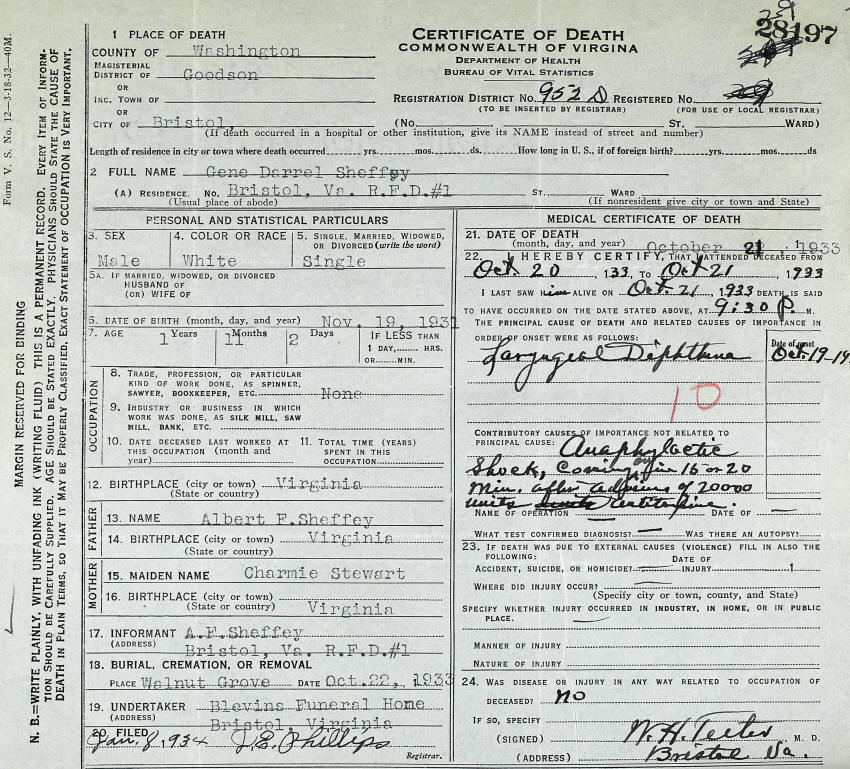 Form V. S. No. 12—3-18-32—40M.
MARGIN RESERVED FOR BINDING
N. B.=WRITE PLAINLY, WITH UNFADING INK (WRITING FLUID) THIS IS A PERMANENT RECORD. EVERY ITEM OF INFORM-
TION SHOULD BE CAREFULLY SUPPLIED. AGE SHOULD BE STATED EXACTLY. PHYSICIANS SHOULD STATE THE CAUSE OF
DEATH IN PLAIN TERMS, SO THAT IT MAY BE PROPERLY CLASSIFIED, EXACT STATEMENT OF OCCUPATION IS VERY IMPORTANT.
1 PLACE OF DEATH
COUNTY OF Washington
MAGISTERIAL
DISTRICT OF Goodson
OR
INC. TOWN OF
OR
CITY OF Bristol,
CERTIFICATE OF DEATH
COMMONWEALTH OF VIRGINA
DEPARTMENT OF HEALTH
BUREAU OF VITAL STATISTICS
29
28197
REGISTRATION DISTRICT NO. 952 D REGISTERED NO.
(TO BE INSERTED BY REGISTRAR) (FOR USE OF LOCAL REGISTRAR)
(No. ST. WARD)
(If death occurred in a hospital or other institution, give its NAME instead of street and number)
Length of residence in city or town where death occurred yrs. mos. ds. How long in U. S., if of foreign birth? yrs. mos. ds
2 FULL NAME Gene Darrel Sheffey
(A) RESIDENCE. NO. Bristol, Va. R.F.D.#1 ST., WARD
(Usual place of abode) (If nonresident give city or town and State)
PERSONAL AND STATISTICAL PARTICULARS
3. SEX 4. COLOR OR RACE 5. SINGLE, MARRIED, WIDOWED,
OR DIVORCED (write the word)
Male White Single
5A. IF MARRIED, WIDOWED, OR DIVORCED
HUSBAND OF
(OR) WIFE OF
6. DATE OF BIRTH (month, day, and year) Nov. 19, 1931
7. AGE 1 Years 11 Months 2 Days IF LESS THAN
1 DAY, HRS.
OR MIN.
OCCUPATION
8. TRADE, PROFESSION, OR PARTICULAR
KIND OF WORK DONE, AS SPINNER,
SAWYER, BOOKKEEPER, ETC. None
9. INDUSTRY OR BUSINESS IN WHICH
WORK WAS DONE, AS SILK MILL, SAW
MILL, BANK, ETC.
10. DATE DECEASED LAST WORKED AT 11. TOTAL TIME (YEARS)
THIS OCCUPATION (month and SPENT IN THIS
year) OCCUPATION
12. BIRTHPLACE (city or town) Virginia
(State or country)
FATHER
13. NAME Albert F.Sheffey
14. BIRTHPLACE (city or town) Virginia
(State or country)
MOTHER
15. MAIDEN NAME Charmie Stewart
16. BIRTHPLACE (city or town)
(State or country) Virginia
17. INFORMANT A.F.Sheffey
(ADDRESS) Bristol, Va. R.F.D.#1
18. BURIAL, CREMATION, OR REMOVAL
PLACE Walnut Grove DATE Oct.22, 1933
19. UNDERTAKER Blevins Funeral Home
(ADDRESS) Bristol, Virginia
20. FILED Jan. 8, 1934 J.E. Phillips
Registrar.
MEDICAL CERTIFICATE OF DEATH
21. DATE OF DEATH
(month, day, and year) October 21, 1933
22. I HEREBY CERTIFY, THAT I ATTENDED DECEASED FROM
Oct. 20, 133, TO Oct 21, 1933
I LAST SAW him ALIVE ON Oct. 21, 1933 DEATH IS SAID
TO HAVE OCCURRED ON THE DATE STATED ABOVE, AT 9:30 P. M.
THE PRINCIPAL CAUSE OF DEATH AND RELATED CAUSES OF IMPORTANCE IN
ORDER OF ONSET WERE AS FOLLOWS: Date of onset
Laryngeal Diphtheria Oct-19-19
10
CONTRIBUTORY CAUSES OF IMPORTANCE NOT RELATED TO
PRINCIPAL CAUSE: Anaphylactic
Shock, Coming on in 15 or 20
Min. after of 20000
units antitoxine.
NAME OF OPERATION — DATE OF —
WHAT TEST CONFIRMED DIAGNOSIS? — WAS THERE AN AUTOPSY?
23. IF DEATH WAS DUE TO EXTERNAL CAUSES (VIOLENCE) FILL IN ALSO THE
FOLLOWING: DATE OF
ACCIDENT, SUICIDE, OR HOMICIDE? INJURY 1
WHERE DID INJURY OCCUR?
(Specify city or town, county, and State)
SPECIFY WHETHER INJURY OCCURRED IN INDUSTRY, IN HOME, OR IN PUBLIC
PLACE. —
MANNER OF INJURY
NATURE OF INJURY
24. WAS DISEASE OR INJURY IN ANY WAY RELATED TO OCCUPATION OF
DECEASED? no
IF SO, SPECIFY
(SIGNED) W. H. Teeter M. D.
(ADDRESS) Bristol Va.